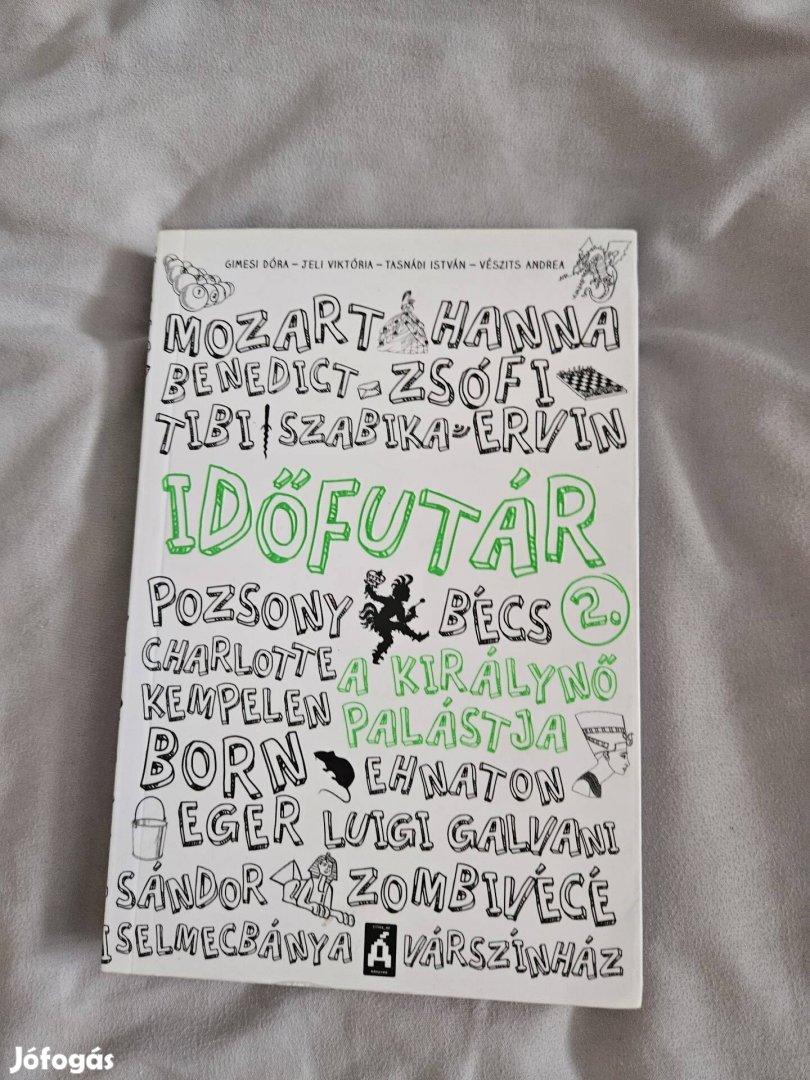 GIMESI DÓRA – JELI VIKTÓRIA – TASNÁDI ISTVÁN – VÉSZITS ANDREA
MOZART HANNA
BENEDICT ZSÓFI
TIBI SZABIKA ERVIN
IDŐFUTÁR
POZSONY BÉCS 2.
CHARLOTTE A KIRÁLYNŐ
KEMPELEN PALÁSTJA
BORN EHNATON
EGER LUIGI GALVANI
SÁNDOR ZOMBIVÉCÉ
SELMECBÁNYA Á VÁRSZÍNHÁZ
Jófogás